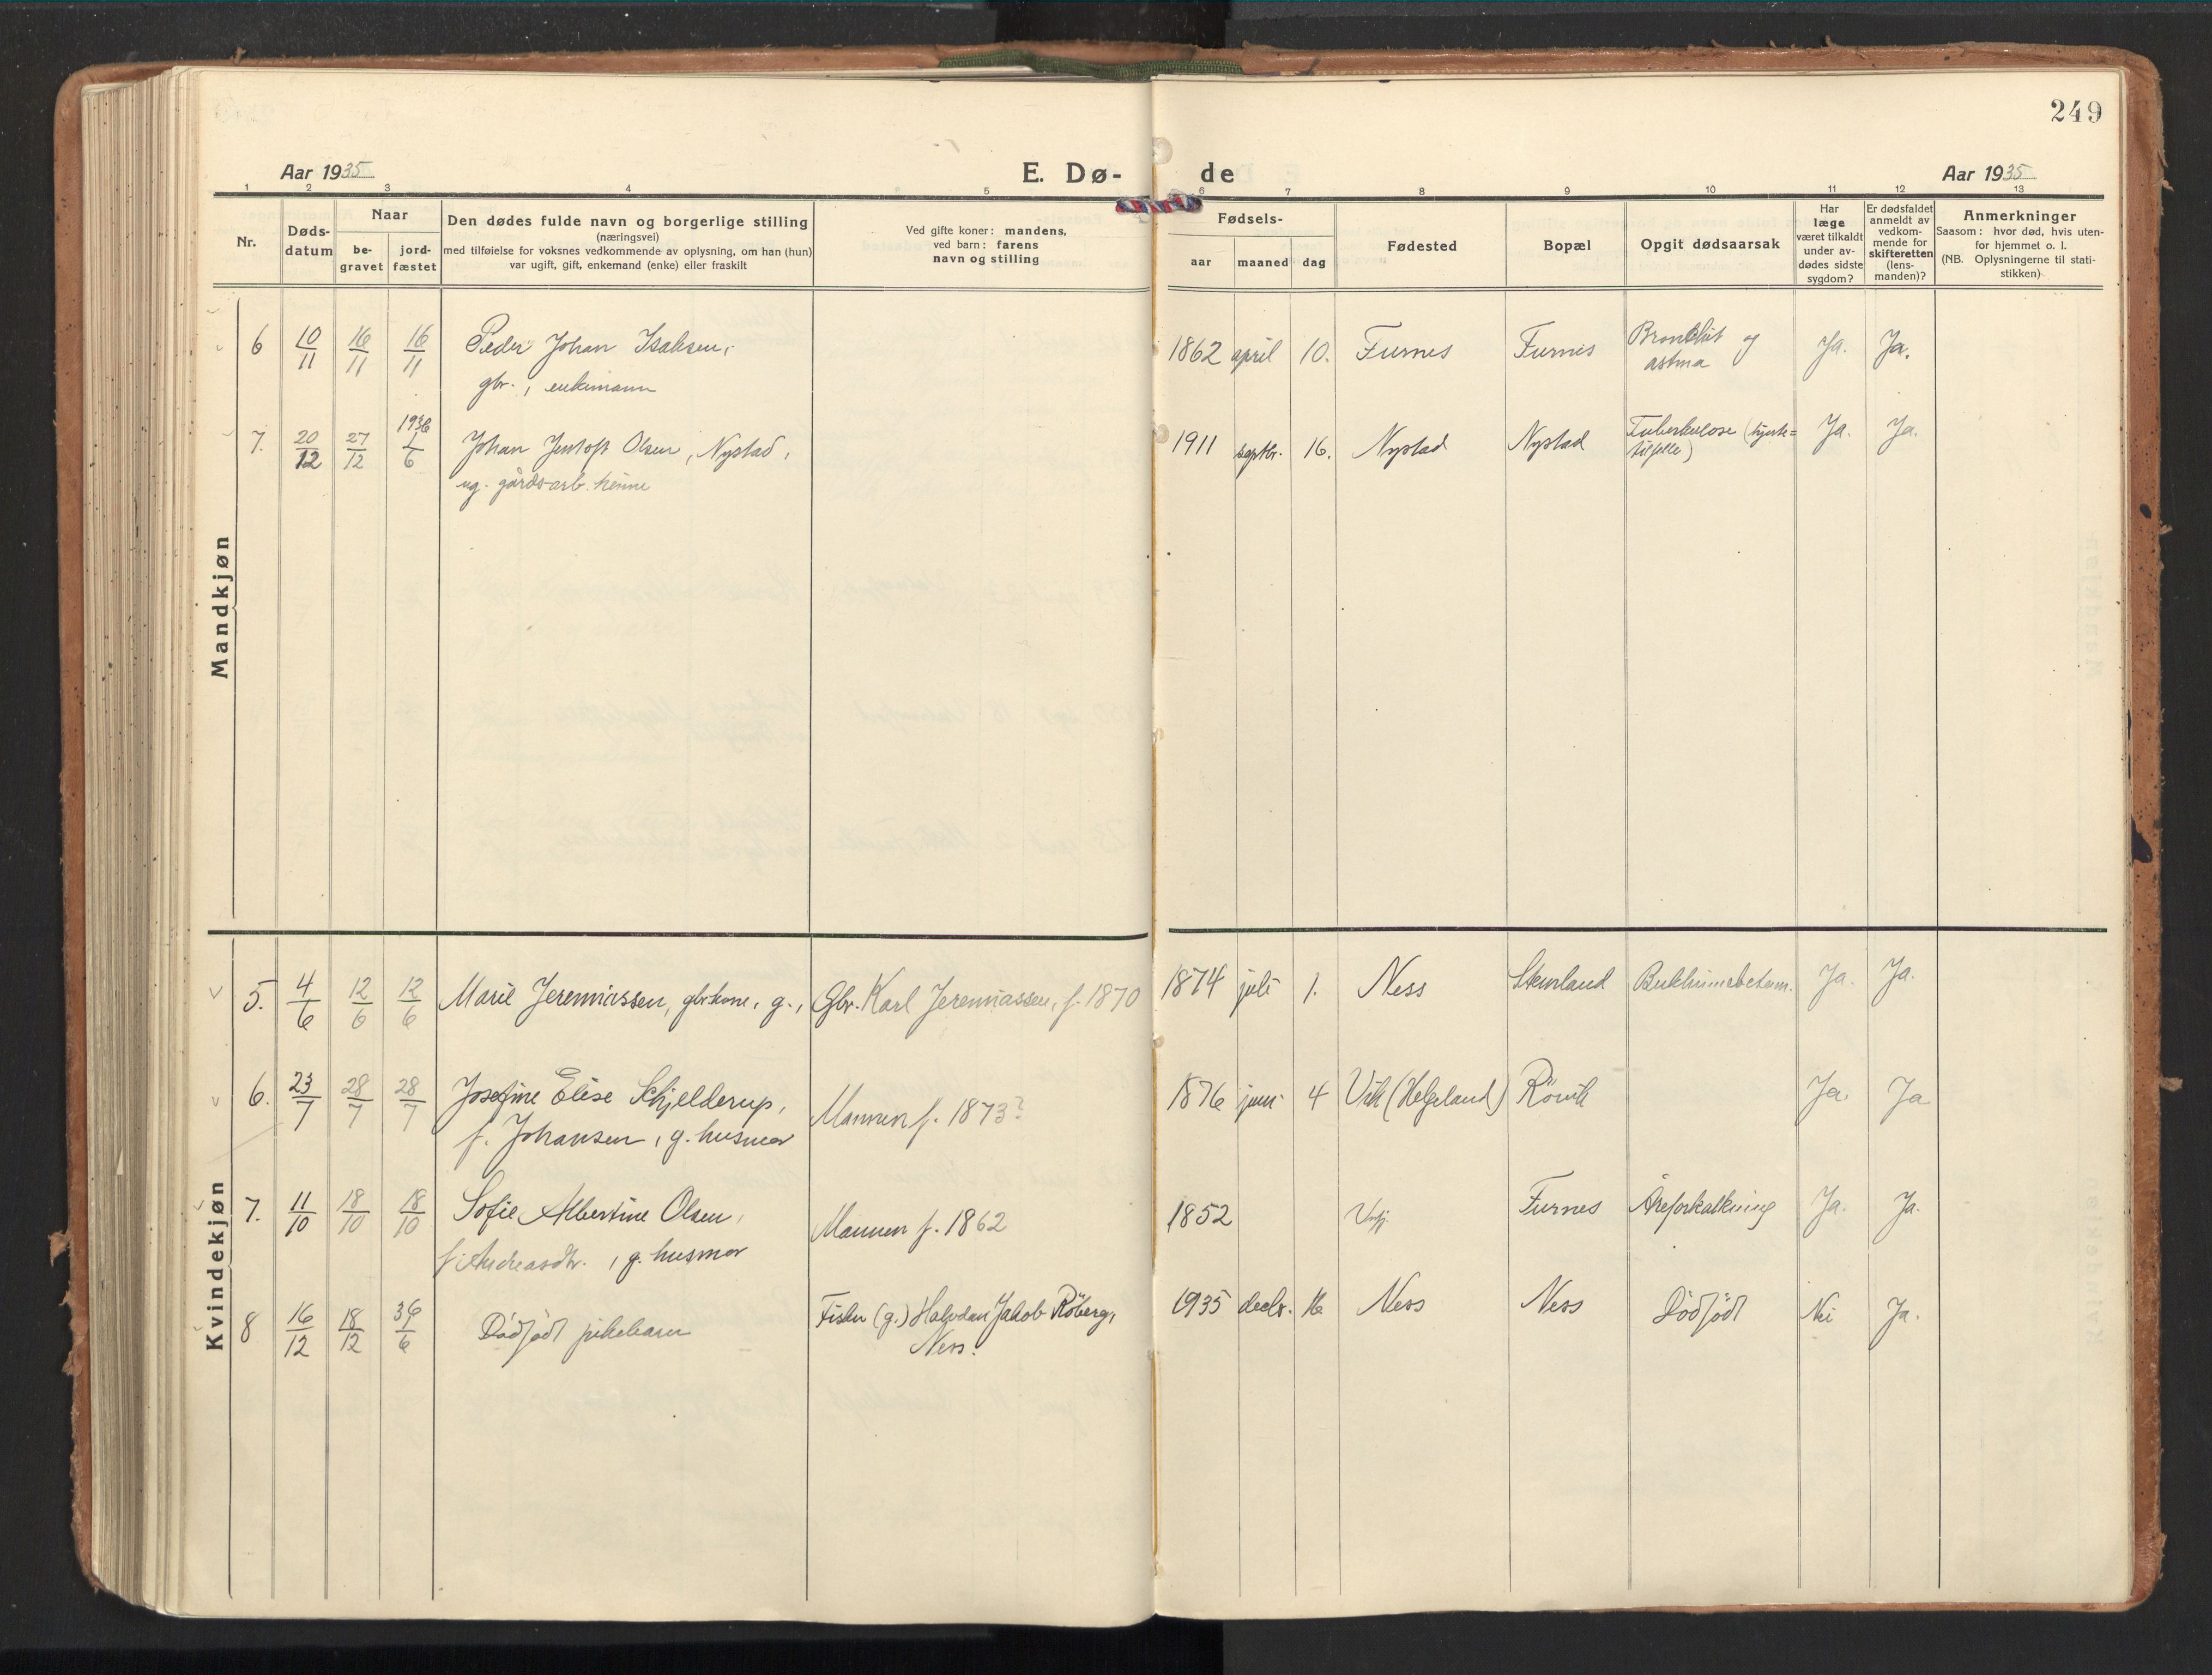 249
Aar 1935
E. Dø-
de
Aar 1935
1 2 3 4 5 6 7 8 9 10 11 12 13
Nr.
Døds-
datum
Naar
be-
gravet
jord-
fæstet
Den dødes fulde navn og borgerlige stilling
(næringsvei)
med tilføielse for voksnes vedkommende av oplysning, om han (hun)
var ugift, gift, enkemand (enke) eller fraskilt
Ved gifte koner: mandens,
ved barn: farens
navn og stilling
Fødsels-
aar maaned dag
Fødested
Bopæl
Opgit dødsaarsak
Har
læge
været tilkaldt
under av-
dødes sidste
sygdom?
Er dødsfaldet
anmeldt av
vedkom-
mende for
skifteretten
(lens-
manden)?
Anmerkninger
Saasom: hvor død, hvis uten-
for hjemmet o. l.
(NB. Oplysningerne til stati-
stikken)
Mandkjøn
6 10/11 16/11 16/11 Peder Johan Isaksen, 1862 april 10. Furnes Furnes Bronchit og Ja. Ja.
gbr., enkemann astma
1936
7. 20/12 27/12 1/6 Johan Jentoft Olsen, Nystad, 1911 septbr. 16. Nystad Nystad Tuberkulose (hjerte= Ja. Ja.
ug. gårdsarb. hjemme tilfelle)
Kvindekjøn
5. 4/6 12/6 12/6 Marie Jeremiassen, gbr.kone, g., Gbr. Karl Jeremiassen, f. 1870 1874 juli 1. Ness Stenland Bukhinnebetenn. Ja. Ja.
6. 23/7 28/7 28/7 Josefine Elise Schjelderup, Mannen f. 1873? 1876 juni 4 Vik (Helgeland) Rörvik Ja. Ja
f. Johansen, g. husmor
7. 11/10 18/10 18/10 Sofie Albertine Olsen, Mannen f. 1862 1852 Furnes Åreforkalkning Ja. Ja.
f. Andreasdtr., g. husmor
8 16/12 18/12 36 1/6 Dödfödt pikebarn Fisker (g.) Halvdan Jakob Röberg, 1935 decbr. 16 Ness Ness Dödfödt Nei Ja.
Ness.